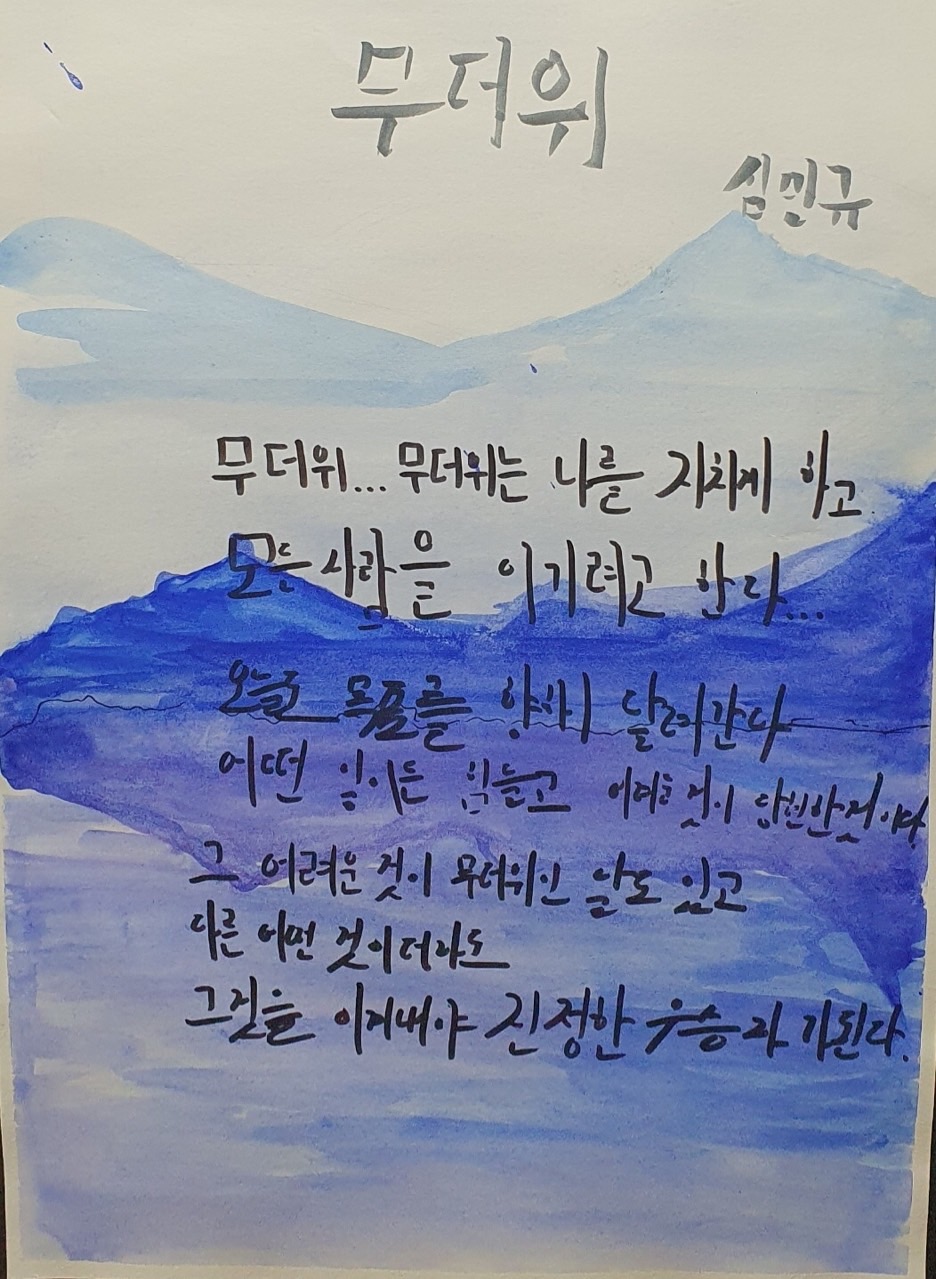 무더위
심민규
무더위... 무더위는 나를 지치게 하고
모든 사람을 이기려고 한다...
오늘도 목표를 향해 달려간다
어떤 일이든 힘들고 어려운 것이 당연한것이다
그 어려운 것이 무더위인 날도 있고
다른 어떤 것이더라도
그것을 이겨내야 진정한 우승자가된다.